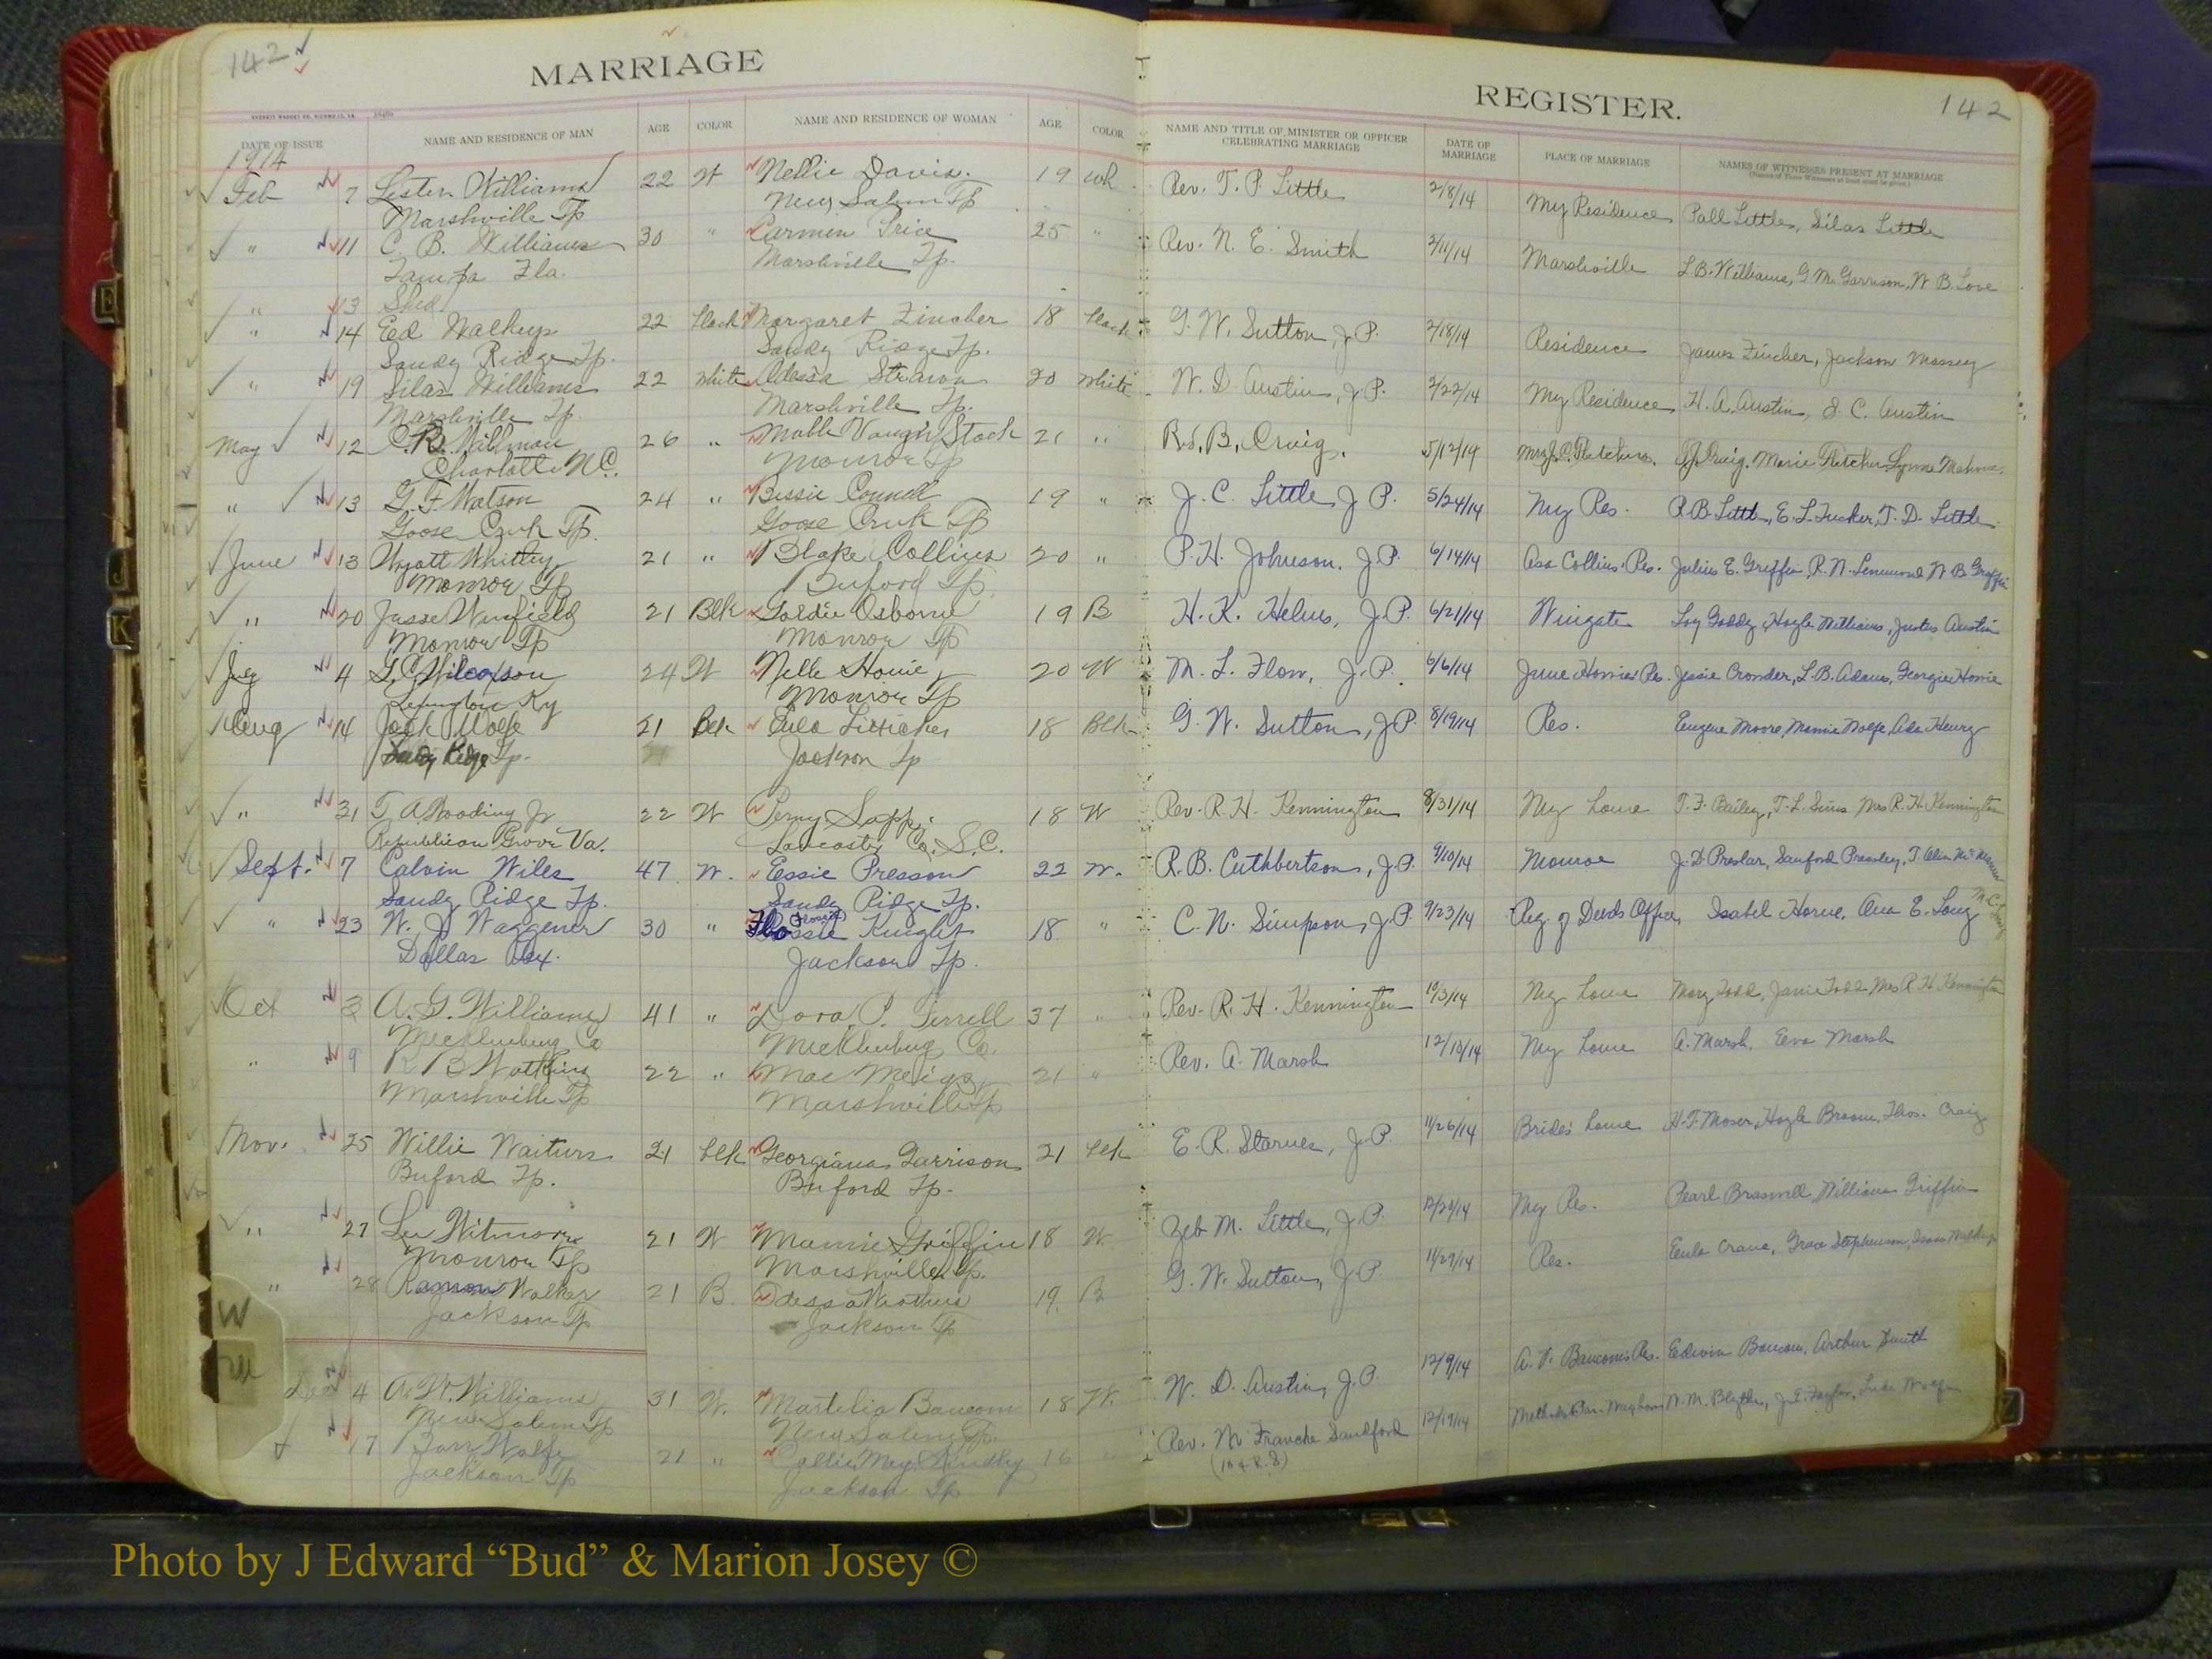 142
MARRIAGE
REGISTER.
142
DATE OF ISSUE NAME AND RESIDENCE OF MAN AGE COLOR NAME AND RESIDENCE OF WOMAN AGE COLOR NAME AND TITLE OF MINISTER OR OFFICER CELEBRATING MARRIAGE DATE OF MARRIAGE PLACE OF MARRIAGE NAMES OF WITNESSES PRESENT AT MARRIAGE
1914
Feb 7 Lester Williams 22 W Nellie Davis. 19 wh Rev. T. P. Little 2/8/14 My Residence Pall Little, Silas Little
Marshville Tp New Salem Tp
" 11 C. B. Williams 30 " Carmen Price 25 " Rev. N. E. Smith 2/11/14 Marshville L.B. Williams, G M. Garrison, W B. Love
Tampa Fla. Marshville Tp.
" 13
" 14 Ed Walkup 22 black Margaret Fincher 18 black G. W. Sutton, J.P. 2/18/14 Residence James Fincher, Jackson Massey
Sandy Ridge Tp. Sandy Ridge Tp.
" 19 Silas Williams 22 white Strawn 20 white W. D. Austin, J.P. 2/22/14 My Residence H. A. Austin, J. C. Austin
Marshville Tp. Marshville Tp.
May 12 26 " Mable Vaughn Stack 21 " B. Craig. 5/12/14 Marie Fletcher
Charlotte N.C. Monroe Tp
" 13 G. F. Watson 24 " Bessie 19 " J. C. Little J P. 5/24/14 My Res. R B. Little, E. L. Tucker, T. D. Little
Goose Creek Tp. Goose Creek Tp
June 13 Wyatt Whitley 21 " Blake Collins 20 " P. H. Johnson. J.P. 6/14/14 Asa Collins' Res. Julius E. Griffin, R. N. W B Griffin
Monroe Tp Buford Tp.
" 20 Jesse Winfield 21 Blk Goldie Osborne 19 B H. K. Helms, J.P. 6/21/14 Wingate Hoyle Williams, Justus Austin
Monroe Tp Monroe Tp
July 4 G. C. Wilcoxson 24 W Nelle Howie 20 W M. L. Flow, J.P. 6/6/14 June Howie's Res. Jessie Crowder, L.B. Adams, Georgie Howie
Lexington Ky Monroe Tp
Aug 14 Jack Wolfe 21 Blk Lula 18 Blk G. W. Sutton, J.P. 8/19/14 Res. Eugene Moore, Mamie Wolfe, Ada Henry
Sandy Ridge Tp. Jackson Tp
" 31 T A Wooding Jr 22 W Perny Sapp 18 W Rev. R. H. Kennington 8/31/14 My home T. F. Bailey, T. L. Sims Mrs R. H. Kennington
Republican Grove Va. Lancaster Co. S.C.
Sept. 7 Calvin Wiles 47 W. Essie Presson 22 W. R. B. Cuthbertson, J.P. 9/10/14 Monroe J. D Preslar, Sanford Pressley,
Sandy Ridge Tp. Sandy Ridge Tp.
" 23 W. J. Waggener 30 " Flossie Knight 18 " C. N. Simpson, J.P. 9/23/14 Reg. of Deeds Office, Isabel Horne, Ana E. Long
Dallas Tex. Jackson Tp.
Oct 3 A. G. Williams 41 " Dora P. Ferrell 37 " Rev. R. H. Kennington 10/3/14 My home Mary Todd, Janie Todd Mrs R H. Kennington
Mecklenburg Co Mecklenburg Co.
" 9 R B Watkins 22 " Mae Meigs 21 " Rev. A. Marsh 12/10/14 My home A. Marsh, Eva Marsh
Marshville Tp Marshville Tp
Nov. 25 Willie Waiturs 21 blk Georgiana Garrison 21 blk E. R. Starnes, J.P. 11/26/14 Brides home H. F. Moser, Hoyle Broom, Thos. Craig
Buford Tp. Buford Tp.
" 27 Lee Witmore 21 W Mamie Griffin 18 W Zeb M. Little, J.P. 12/20/14 My Res. Pearl Braswell, William Griffin
Monroe Tp Marshville Tp.
" 28 Ransom Walker 21 B Odessa 19 B G. W. Sutton, J.P. 11/29/14 Res. Eula Crane, Grace Stephenson,
Jackson Tp Jackson Tp
W
Dec 4 A. W. Williams 31 W. Martelia Baucom 18 W. W. D. Austin, J.P. 12/9/14 A. V. Baucom's Res. Edwin Baucom, Arthur Smith
New Salem Tp New Salem Tp.
17 Wolfe 21 " Callie May 16 " Rev. Sandford 12/19/14 W. M. Blythe,
Jackson Tp Jackson Tp
Photo by J Edward “Bud” & Marion Josey ©